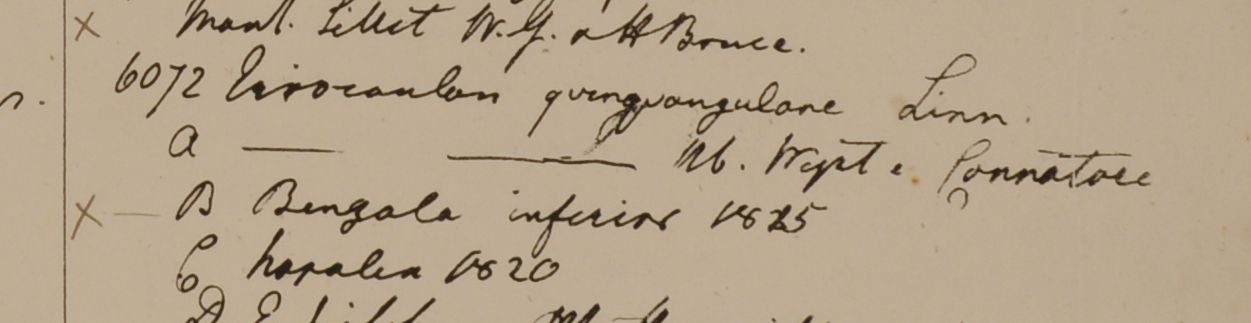 x Mont. Sillet W. G. & H Bruce.
6072 Eirocaulon quinquangulare Linn.
a — — Hb. Wight e
x — B Bengala inferior 1825
C Napalia 1820
D